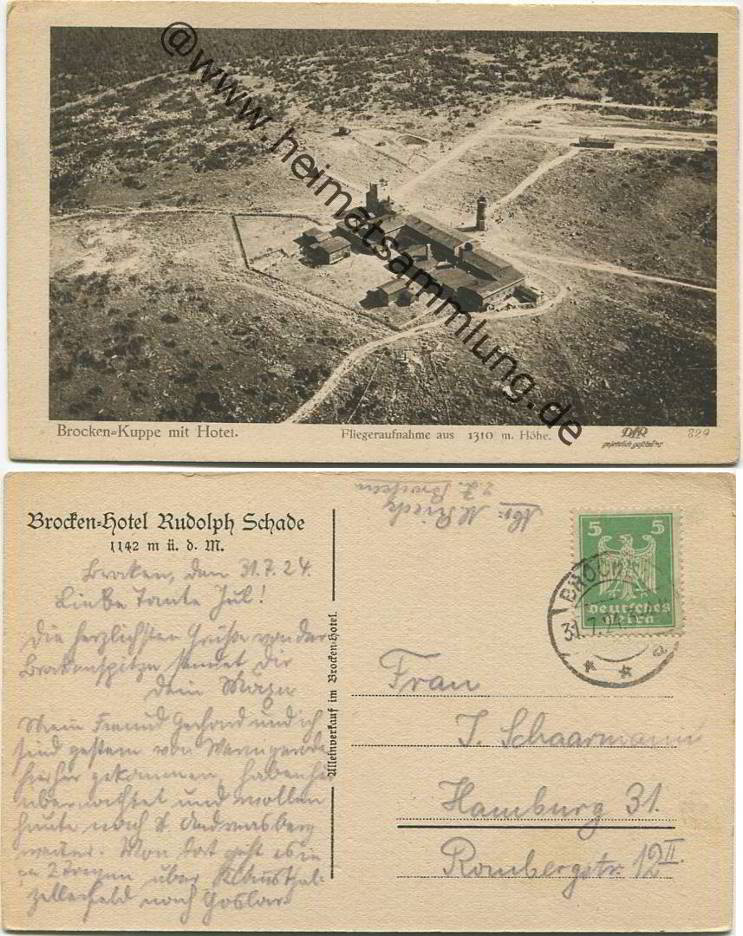 @www.heimatsammlung.de
Brocken-Kuppe mit Hotel.
Fliegeraufnahme aus 1310 m. Höhe.
gesetzlich geschützt
829
Brocken-Hotel Rudolph Schade
1142 m ü. d. M.
Brocken, den 31.7.24.
Liebe Tante Jul!
Die herzlichsten Grüße von der
Brockenspitze sendet Dir
Dein
Mein Freund Gerhard und ich
sind gestern von Wernigerode
hierher gekommen, haben hier
übernachtet und wollen
heute nach St. Andreasberg
weiter. Von dort geht es in
2 Tagen über Klausthal-
Zellerfeld nach Goslar.
Alleinverkauf im Brocken-Hotel.
Abs:
5 5
Deutsches
Reich
BROCKEN
31.7.24
Frau
J. Schaarmann
Hamburg 31.
Rombergstr. 12 II.